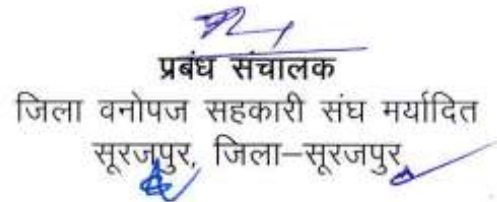 प्रबंध संचालक
जिला वनोपज सहकारी संघ मर्यादित
सूरजपुर, जिला–सूरजपुर